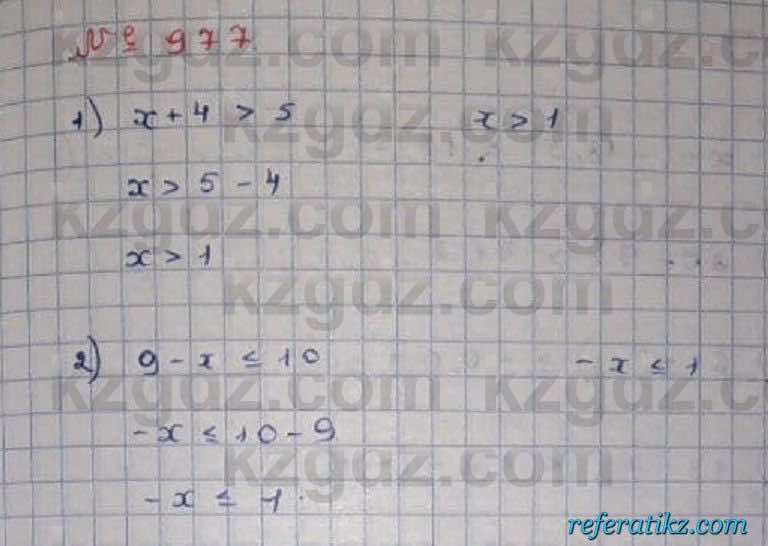 № 977
1) x + 4 > 5 x > 1
x > 5 - 4
x > 1
2) 9 - x ≤ 10 - x ≤ 1
- x ≤ 10 - 9
- x ≤ 1
kzgdz.com
kzgdz.com
kzgdz.com
kzgdz.com
kzgdz.com
kzgdz.com
kzgdz.com
kzgdz.com
referatikz.com